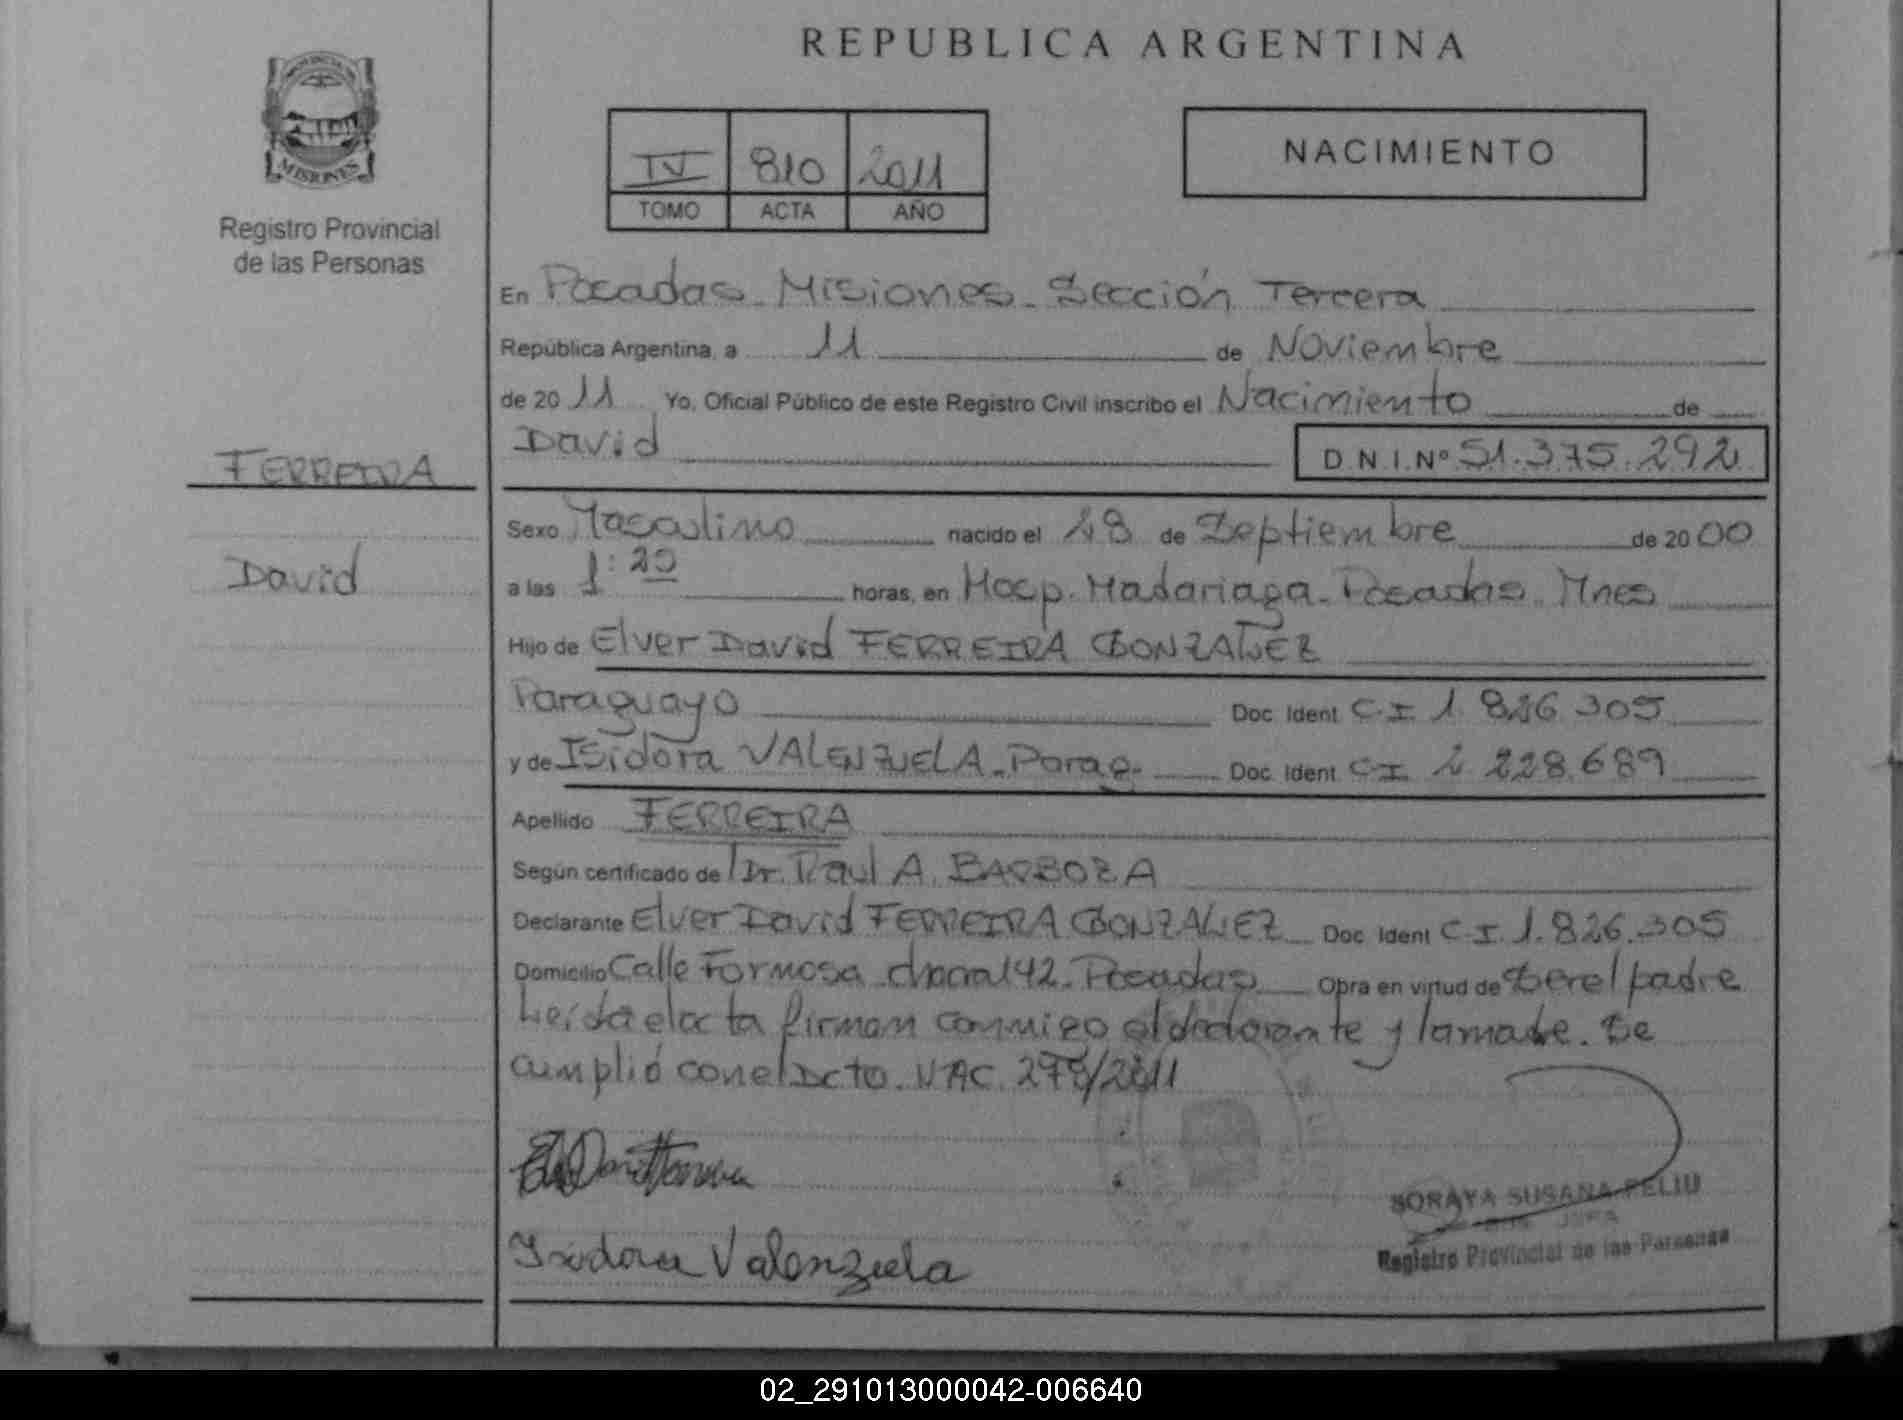 REPUBLICA ARGENTINA
MISIONES
Registro Provincial
de las Personas
IV 810 2011
TOMO ACTA AÑO
NACIMIENTO
En Posadas - Misiones - Sección Tercera
República Argentina, a 11 de Noviembre
de 2011 Yo, Oficial Público de este Registro Civil inscribo el Nacimiento de
David
D.N.I.Nº 51.375.292
FERREIRA
David
Sexo Masculino nacido el 18 de Septiembre de 2000
a las 1:20 horas, en Hosp. Madariaga - Posadas - Mnes
Hijo de Elver David FERREIRA GONZALEZ
Paraguayo Doc. Ident. C.I. 1.826.305
y de Isidora VALENZUELA - Parag. Doc. Ident. C.I. 2.228.689
Apellido FERREIRA
Según certificado de Dr. Raul A. BARBOZA
Declarante Elver David FERREIRA GONZALEZ Doc. Ident. C.I. 1.826.305
Domicilio Calle Formosa chacra 142 - Posadas Obra en virtud de Ser el padre
Leída el acta firman conmigo el declarante y la madre. Se
cumplió con el Dcto. NAC. 278/2011
Isidora Valenzuela
SORAYA SUSANA PELIU
Registro Provincial de las Personas
02_291013000042-006640